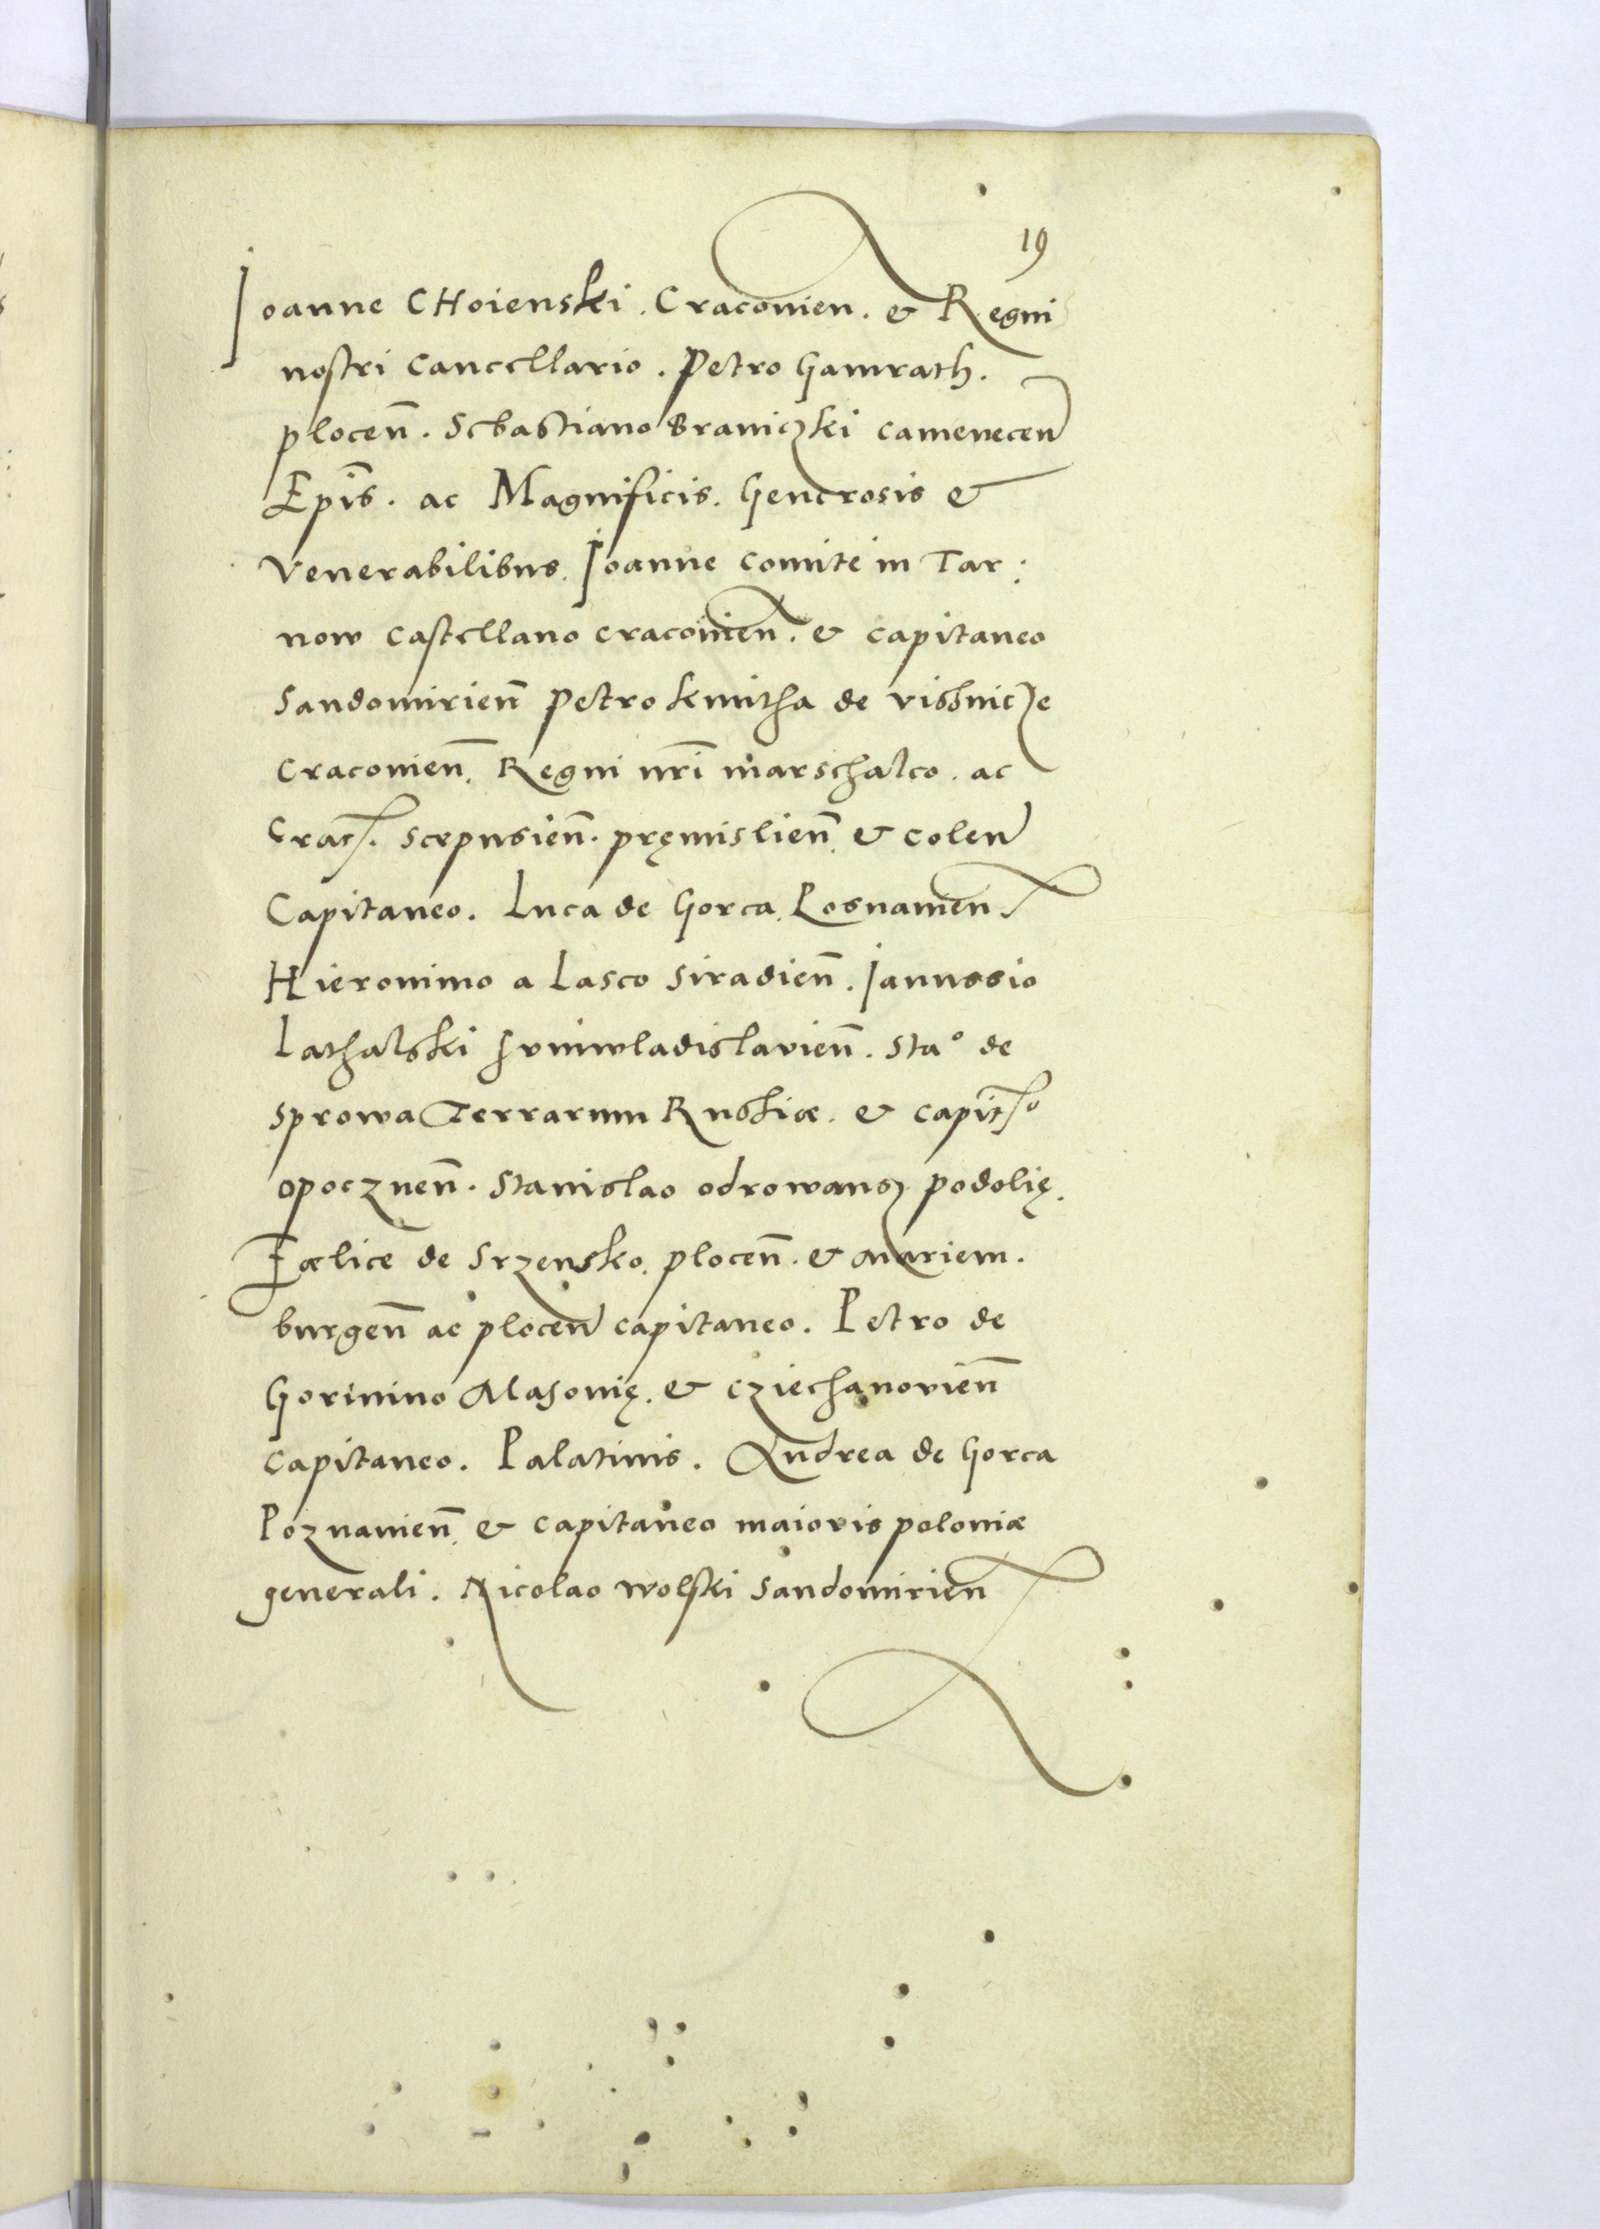 19
Ioanne CHoienski. Cracovien. & Regni
nostri Cancellario. Petro Gamrath.
plocen̄. Sebastiano Braniczki camenecen̄
Ep̄is. ac Magnificis. Generosis &
Venerabilibus. Ioanne comite in Tar:
now castellano cracovien̄. & capitaneo
Sandomirien̄ Petro kmitha de vissnicze
Cracovien̄. Regni nr̄i marschalco. ac
Scepusien̄. pręmislien̄. & colen̄
Capitaneo. Luca de Gorca. Posnanien̄.
Hieronimo a Lasco Siradien̄. Ianussio
Lathalski Iuniwladislavien̄. Staº de
Sprowa Terrarum Russiæ. & capitº
opocznen̄. Stanislao odrowansz podolię.
Fælice de Srzensko. plocen̄. & Mariem.
burgen̄ ac plocen̄ capitaneo. Petro de
Gorinino Masovię. & cziechanovien̄
capitaneo. Palatinis. Andrea de Gorca
Poznanien̄. & capitaneo maioris poloniæ
generali. Nicolao wolski Sandomirien̄